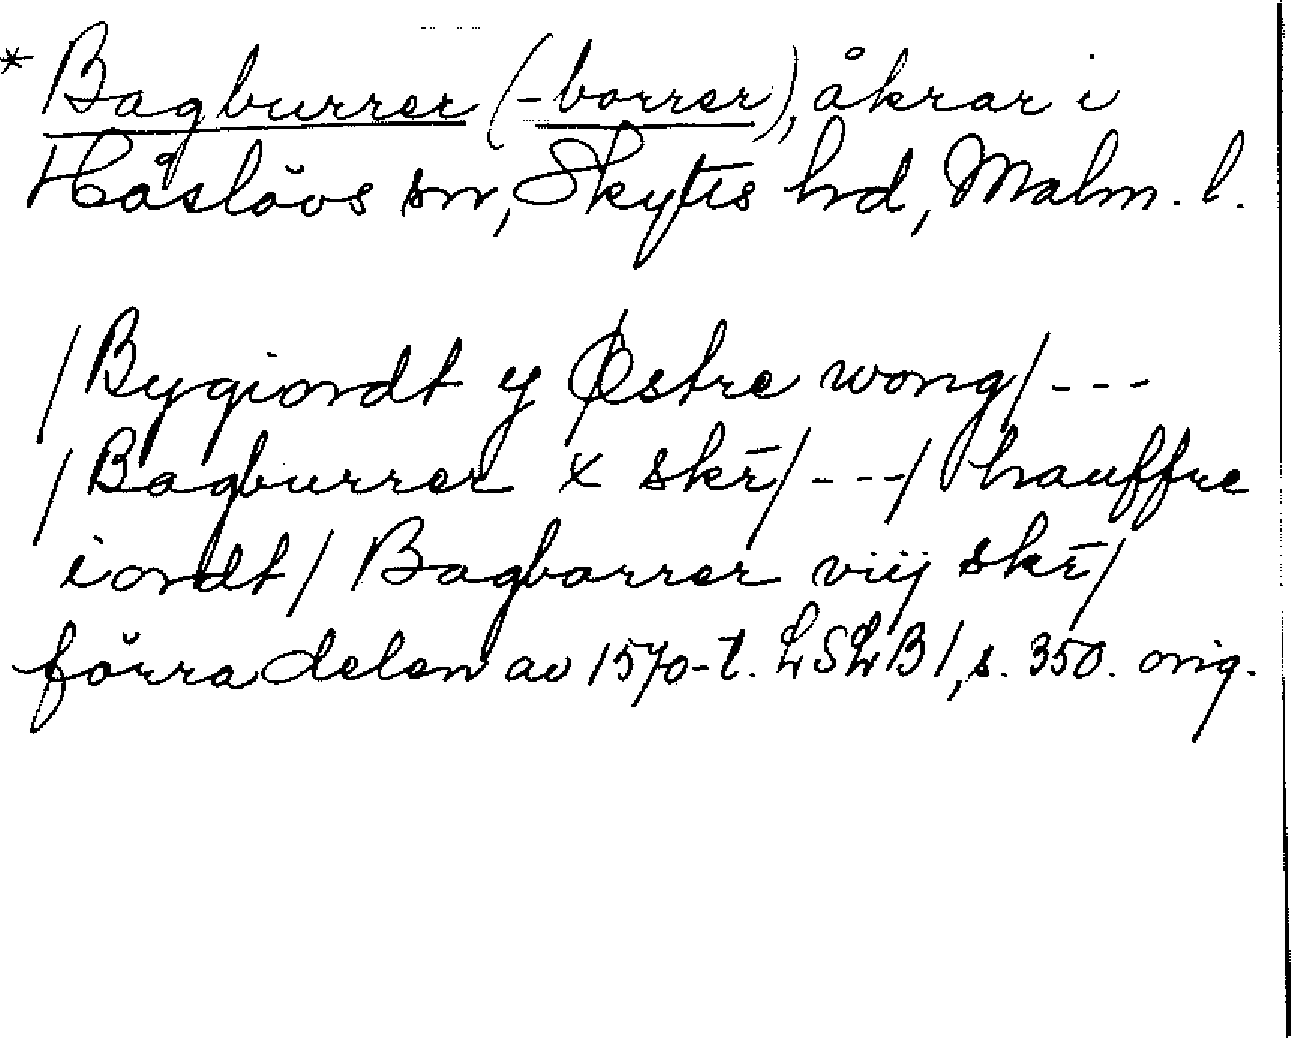 * Bagburrer (-borrer), åkrar i
Håslövs sn, Skytts hd, Malm. l.
/Bygiordt y Østre wong/---
/Bagburrer x skr̄/---/ hauffre
iordt/ Bagborrer viij skr̄/
förra delen av 1570-t. LSLB 1, s. 350. orig.